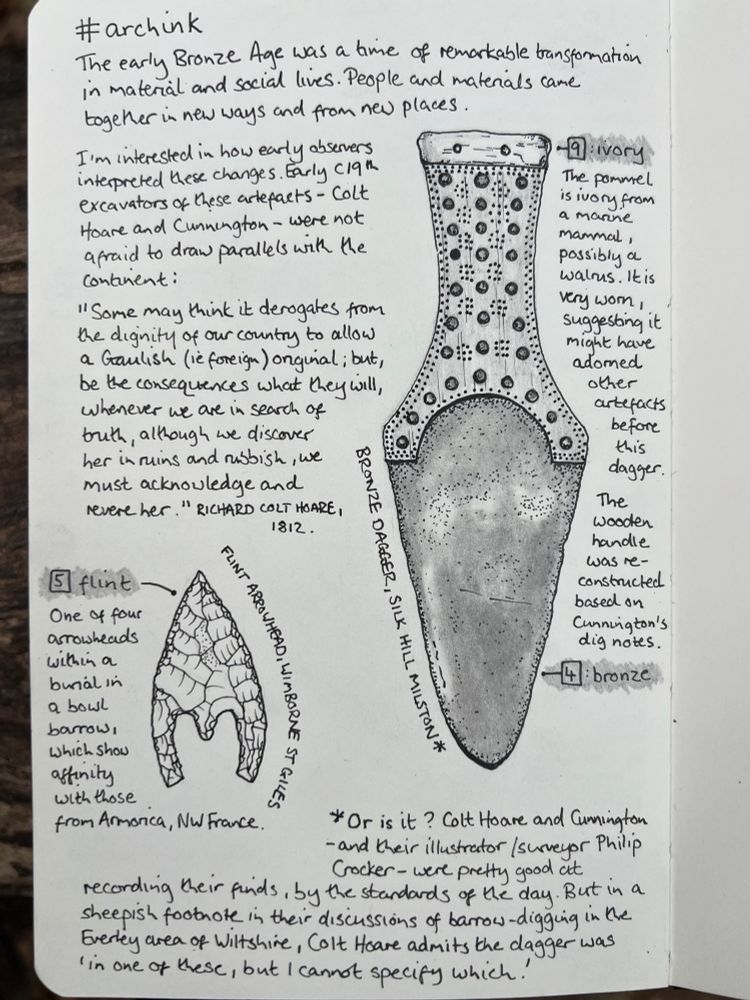 #archink
The early Bronze Age was a time of remarkable transformation
in material and social lives. People and materials came
together in new ways and from new places.
I'm interested in how early observers
interpreted these changes. Early C19th
excavators of these artefacts - Colt
Hoare and Cunnington - were not
afraid to draw parallels with the
continent:
"Some may think it derogates from
the dignity of our country to allow
a Gaulish (ie foreign) original; but,
be the consequences what they will,
whenever we are in search of
truth, although we discover
her in ruins and rubbish, we
must acknowledge and
revere her." RICHARD COLT HOARE,
1812.
9: ivory
The pommel
is ivory from
a marine
mammal,
possibly a
walrus. It is
very worn,
suggesting it
might have
adorned
other
artefacts
before
this
dagger.
The
wooden
handle
was re-
constructed
based on
Cunnington's
dig notes.
4: bronze
BRONZE DAGGER, SILK HILL MILSTON*
5 flint
One of four
arrowheads
within a
burial in
a bowl
barrow,
which show
affinity
with those
from Armorica, NW France.
FLINT ARROWHEAD, WIMBORNE ST GILES
*Or is it? Colt Hoare and Cunnington
- and their illustrator/surveyor Philip
Crocker - were pretty good at
recording their finds, by the standards of the day. But in a
sheepish footnote in their discussions of barrow-digging in the
Everley area of Wiltshire, Colt Hoare admits the dagger was
'in one of these, but I cannot specify which.'